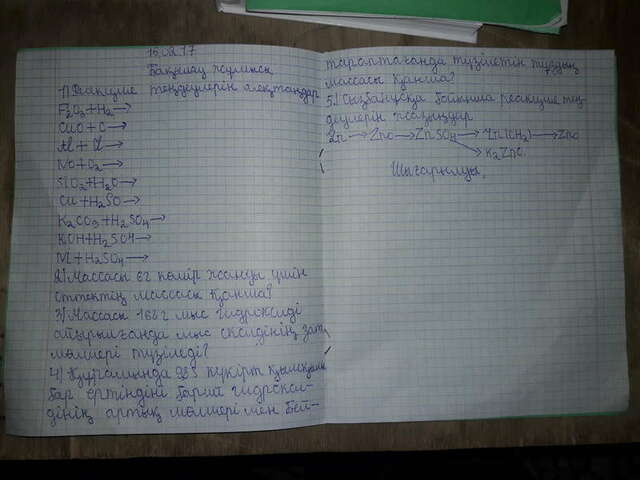 16.02.17
Бақылау жұмысы
1) Реакция теңдеулерін аяқтаңдар
F2O3+H2→
CuO + C→
Al + Cl→
NO+O2→
SiO2+H2O→
Cu+H2SO→
K2CO3+H2SO4→
KOH+H2SO4→
M+H2SO4→
2) Массасы 6г көмір жануы үшін
оттектің массасы қанша?
3) Массасы 166г мыс гидроксиді
айырылғанда мыс оксидінің зат
мөлшері түзіледі?
4) Құрамында 98г күкірт қышқылы
бар ертіндіні барий гидрокси-
дінің артық мөлшері мен бей-
тараптағанда түзілетін тұздың
массасы қанша?
5) Сызбанұсқа бойынша реакция тең
деулерін жазыңдар
Zn→ZnO→ZnSO4→Zn(CH2)→ZnO
K2ZnO
Шығарылуы